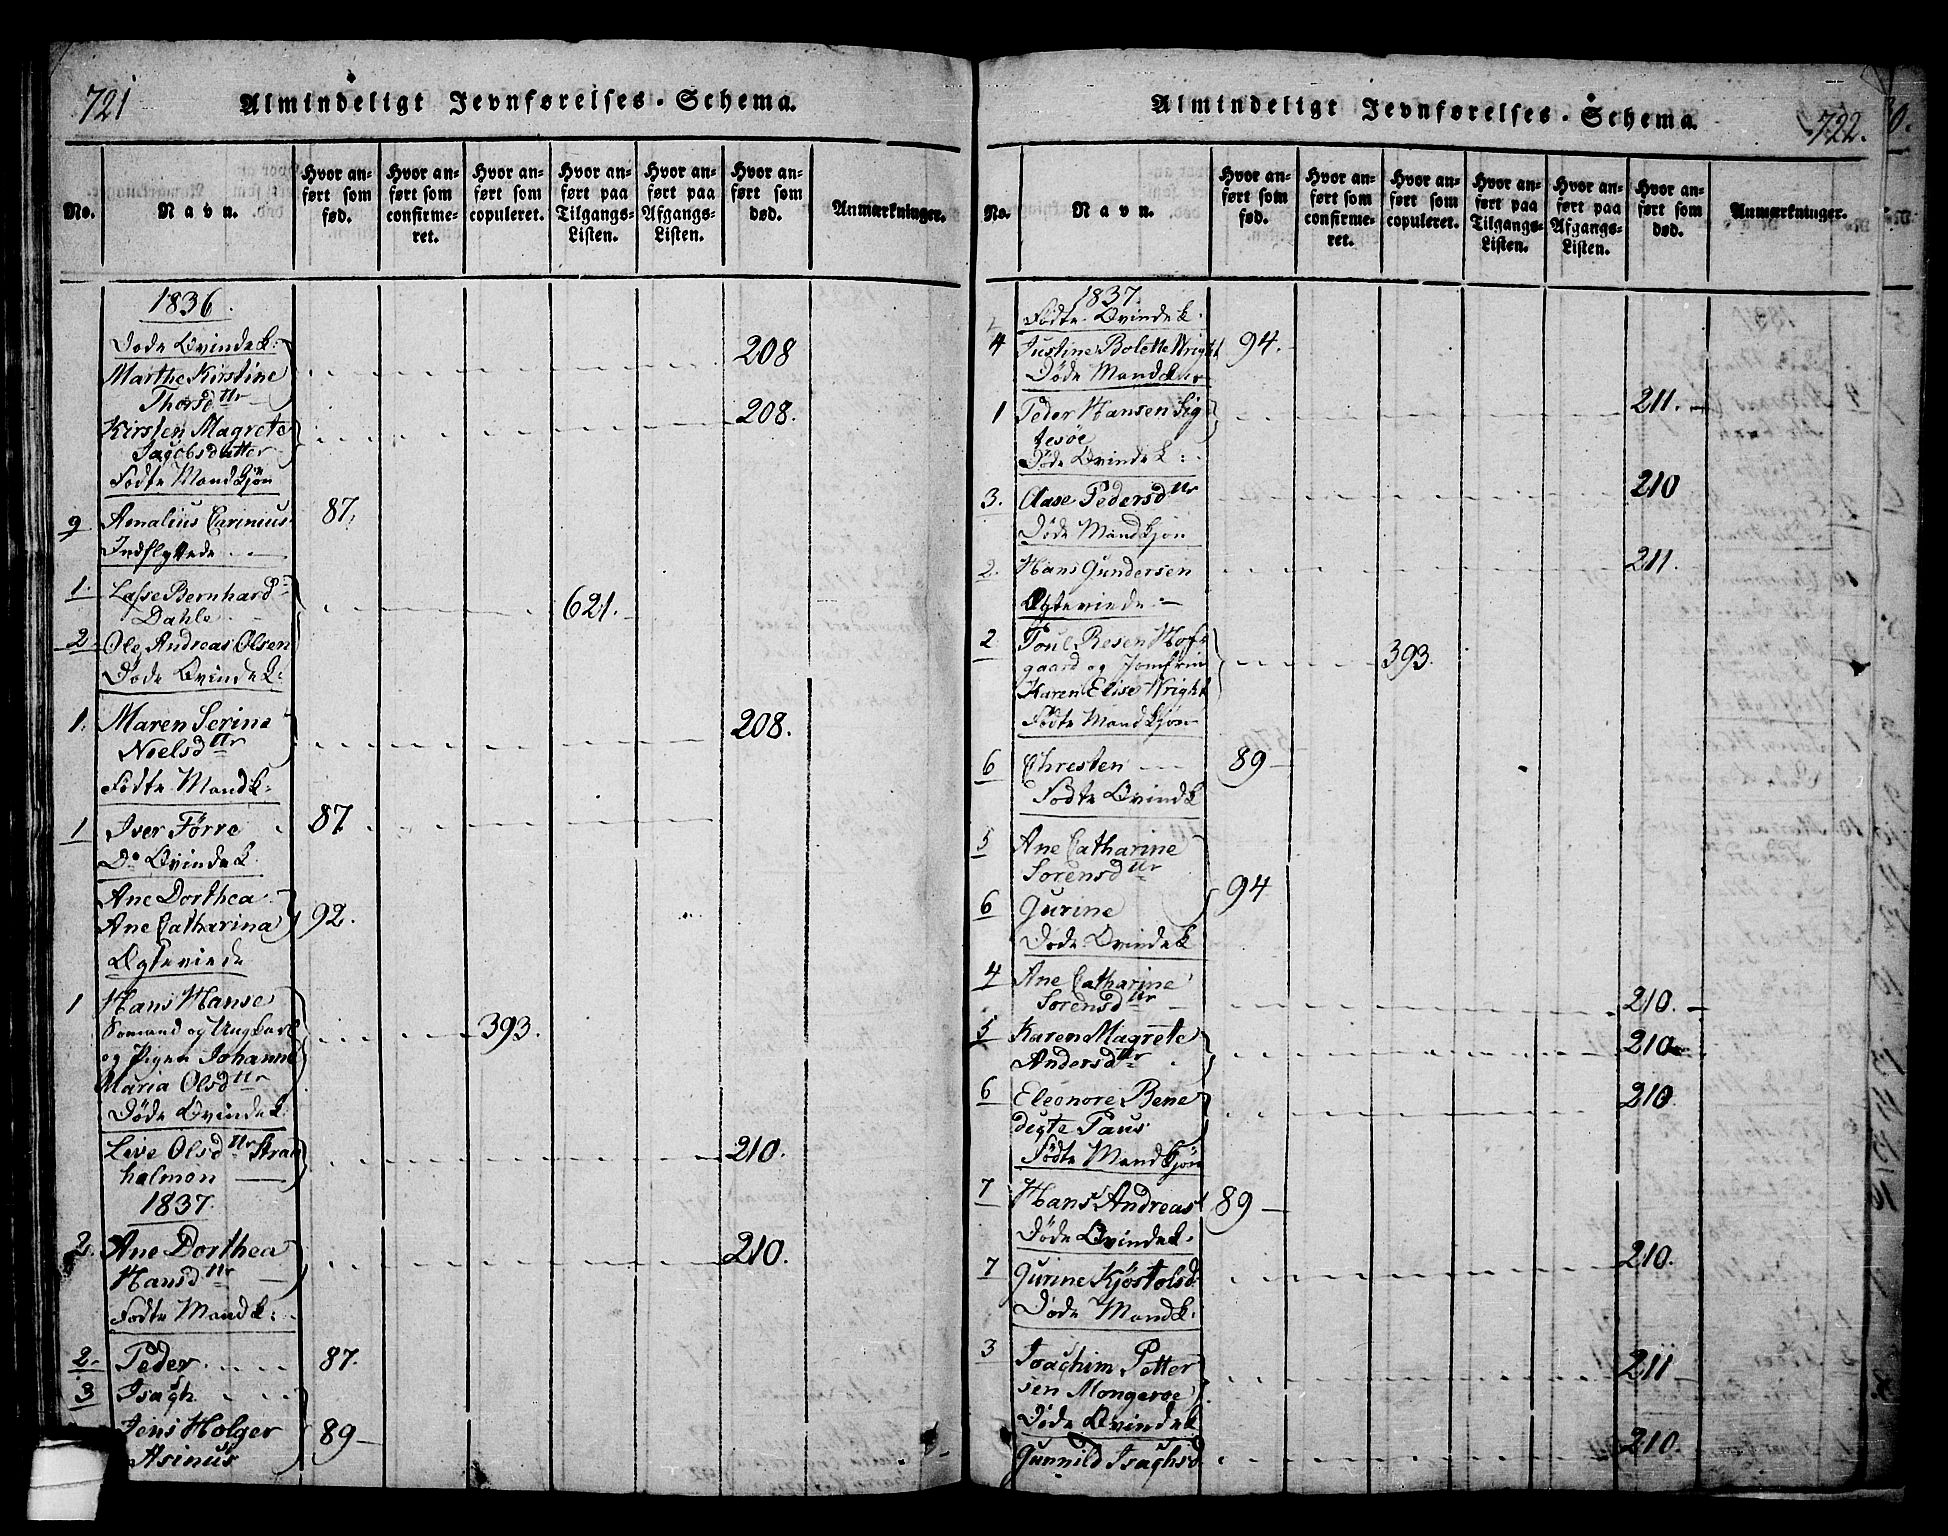 721
Almindeligt Jevnførelses-Schema.
No.
Navn.
Hvor anført som fød.
Hvor anført som confirmeret.
Hvor anført som copuleret.
Hvor anført paa Tilgangs-Listen.
Hvor anført paa Afgangs-Listen.
Hvor anført som død.
Anmærkninger.
1836.
Døde Qvindek:
Marthe Kirstine 208
Thorsdttr
Kirsten Magrete 208.
Jacobsdatter
Fødte Mandkjøn
9 Amalius Carinius 87.
Indflyttede
1. Lasse Bernhard
Dahle 621.
2 Ole Andreas Olsen
Døde Qvindek:
1. Maren Serine 208.
Neelsdttr
Fødte Mandk:
1 Iver Förre 87
Do Qvindek.
Ane Dorthea
Ane Catharina 92.
Ægteviede
1 Hans Hanse
Sömand og Ungkarl 393.
og Pigen Johanne
Maria Olsdttr
Døde Qvindek.
Live Olsdttr Stran 210.
holmen
1837.
2. Ane Dorthea 210.
Hansdttr
Fødte Mandk:
2. Peder 87.
3 Isach
Jens Holger 89
Asinus
722.
Almindeligt Jevnførelses-Schema.
No.
Navn.
Hvor anført som fød.
Hvor anført som confirmeret.
Hvor anført som copuleret.
Hvor anført paa Tilgangs-Listen.
Hvor anført paa Afgangs-Listen.
Hvor anført som død.
Anmærkninger.
1837.
Fødte Qvindek.
4 Justine Bolette Wright 94.
Døde Mandkjør
1 Peder Hansen Sig 211.
tesöe
Døde Qvindek:
3. Aase Pedersdttr 210
Døde Mandkjøn
2. Hans Gundersen 211.
Ægteviede
2 Poul Resen Hof
gaard og Jomfru 393.
Karen Elise Wright
Fødte Mandkjøn
6 Chresten 89
Fødte Qvindk
5 Ane Catharine
Sorensdttr
6 Gurine 94
Døde Qvindek
4 Ane Catharine
Sorensdttr 210.
5 Karen Magrete 210
Andersdttr
6 Eleonore Bene 210
digte Paus
Fødte Mandkjøn
7 Hans Andreas 89
Døde Qvindek.
7 Gurine Kjöstolsd 210.
Døde Mandk:
3 Joachim Petter 211
sen Mongeroe
Døde Qvindek
Gunnild Isachsd 210.